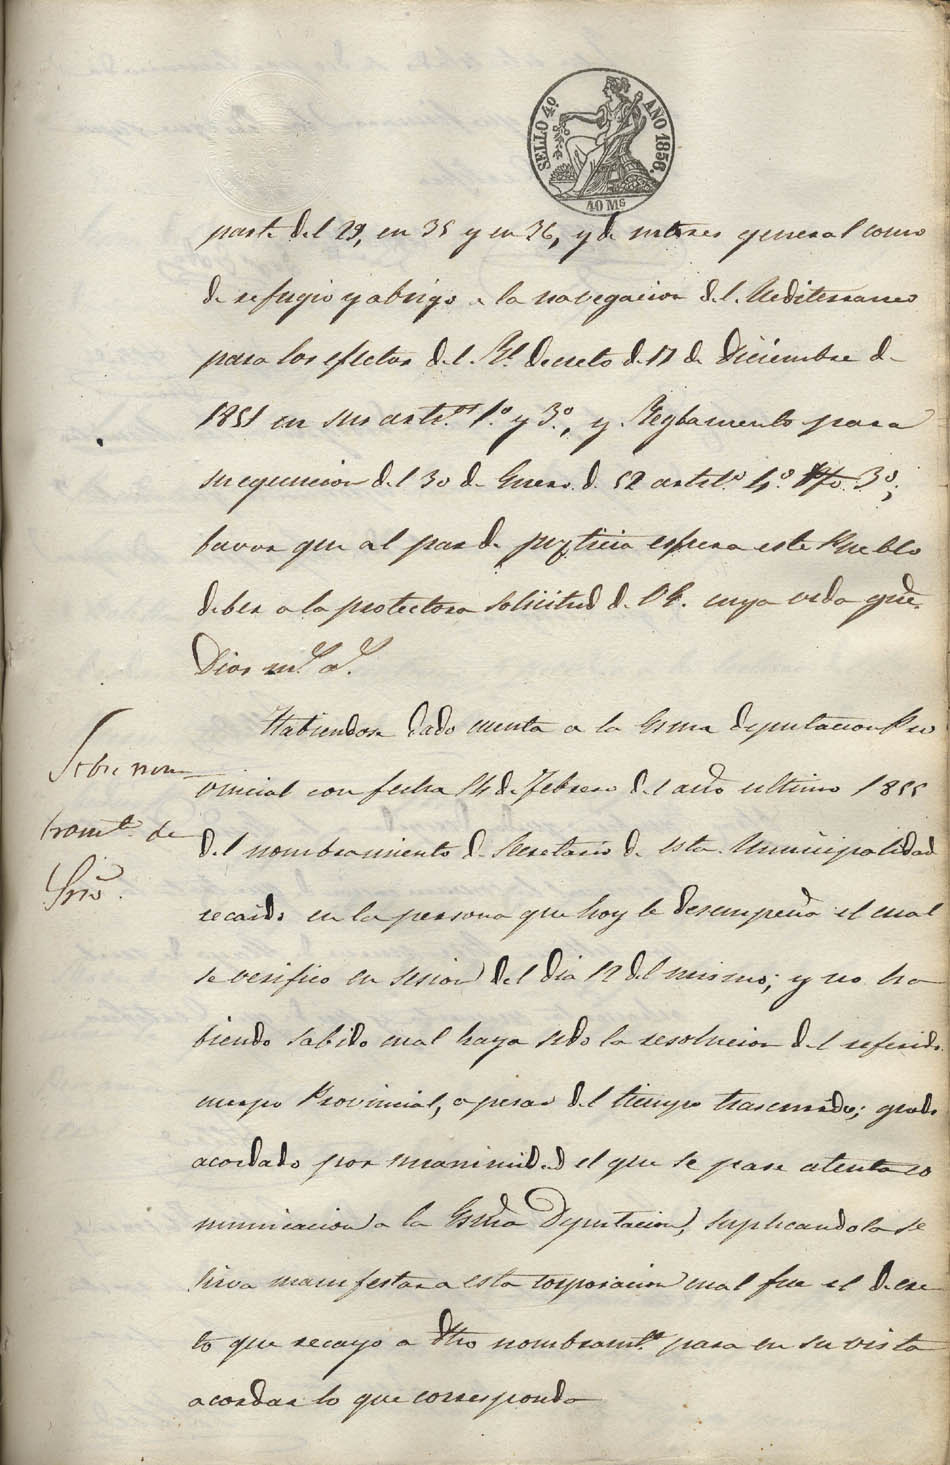 SELLO 4º. AÑO 1856.
40 Ms
parte del 29, en 35 y en 36, y de interes general como
de refugio y abrigo a la navegacion del Mediterraneo
para los efectos del Rl. decreto de 17 de Diciembre de
1851 en sus arts. 1º. y 3º., y Reglamento para
su egecucion del 30 de Enero de 52 artº. 4º. 3º.;
favor que al par de justicia espera este Pueblo
deber a la protectora solicitud de V.E. cuya vida gue.
Dios ms. as.
Sobre nom-
bramto. de
Srio.
Habiendose dado cuenta a la Esma deputacion Pro
vincial con fecha 14 de Febrero del año ultimo 1855
del nombramiento de Secretario de esta Municipalidad
recaido en la persona que hoy le desempeña el cual
se verifico en sesion del dia 12 del mismo; y no ha
biendo sabido cual haya sido la resolucion del referido
cuerpo Provincial, a pesar del tiempo trascurrido; quedo
acordado por unanimidad el que se pase atenta co
municacion a la Esma Deputacion, suplicandola se
sirva manifestar a esta corporacion cual fue el decre
to que recayo a dho nombramto. para en su vista
acordar lo que corresponda